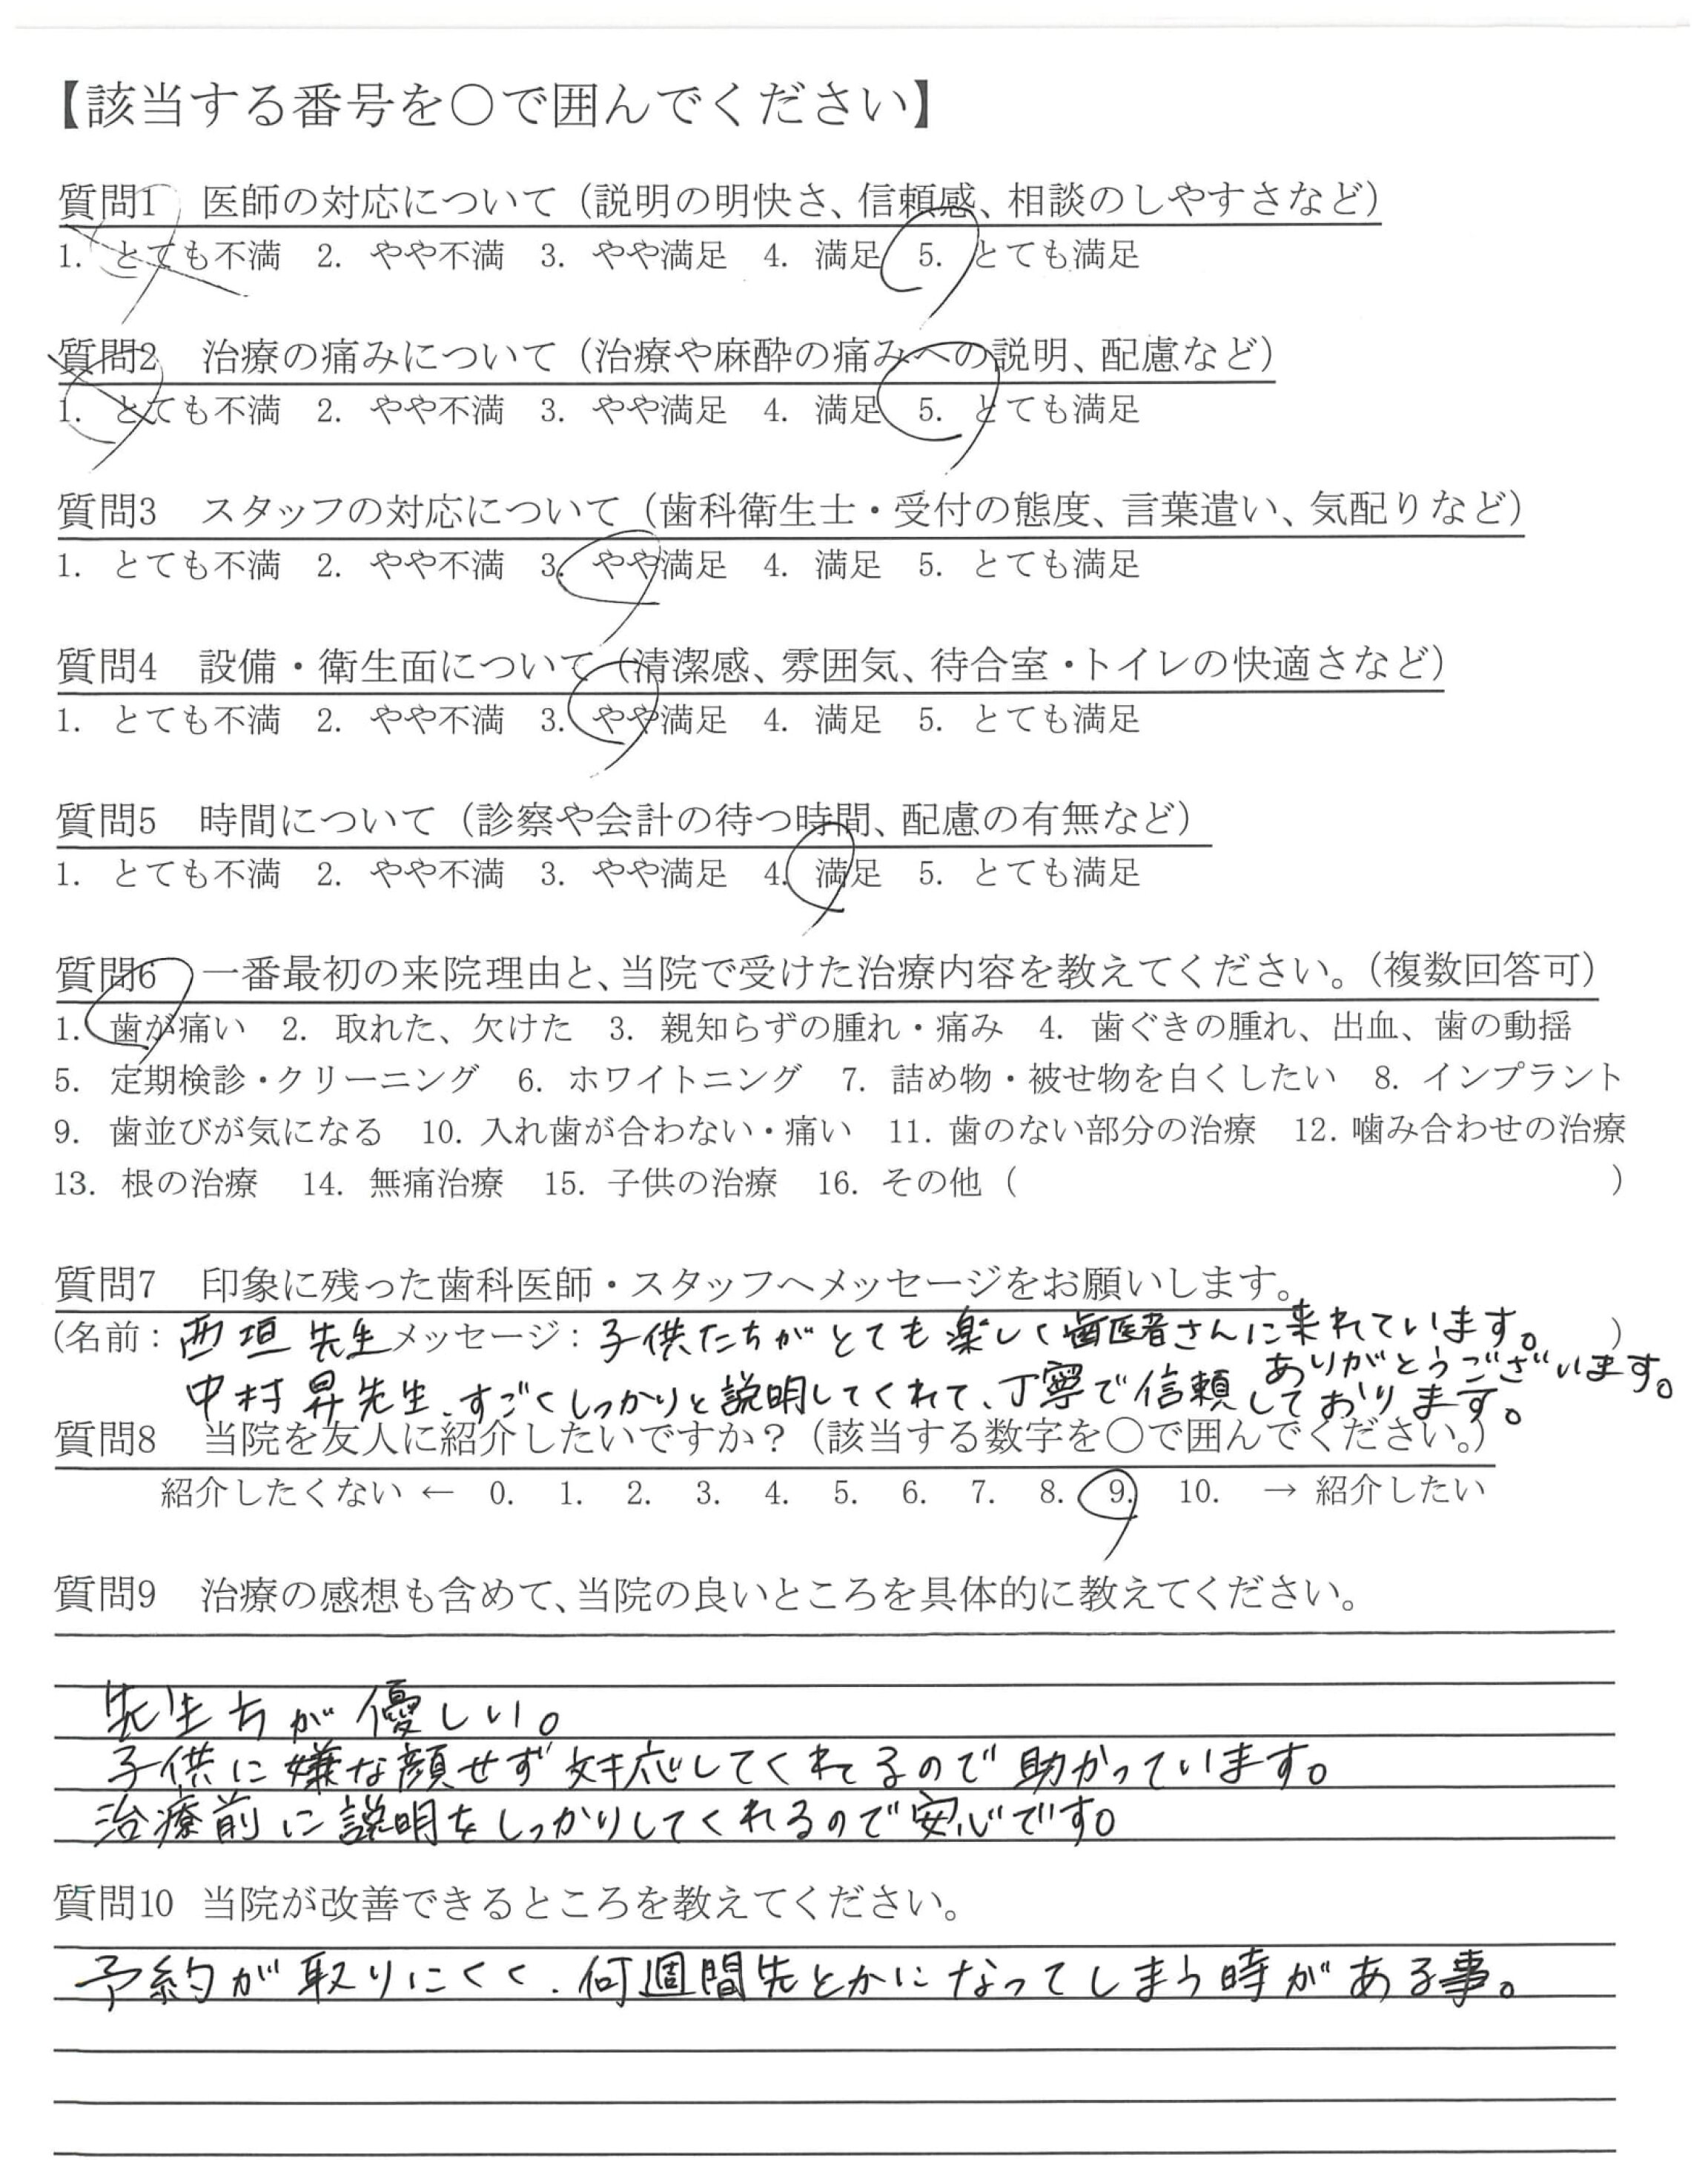 【該当する番号を〇で囲んでください】
質問1　医師の対応について（説明の明快さ、信頼感、相談のしやすさなど）
1. とても不満　2. やや不満　3. やや満足　4. 満足　5. とても満足
質問2　治療の痛みについて（治療や麻酔の痛みへの説明、配慮など）
1. とても不満　2. やや不満　3. やや満足　4. 満足　5. とても満足
質問3　スタッフの対応について（歯科衛生士・受付の態度、言葉遣い、気配りなど）
1. とても不満　2. やや不満　3. やや満足　4. 満足　5. とても満足
質問4　設備・衛生面について（清潔感、雰囲気、待合室・トイレの快適さなど）
1. とても不満　2. やや不満　3. やや満足　4. 満足　5. とても満足
質問5　時間について（診察や会計の待つ時間、配慮の有無など）
1. とても不満　2. やや不満　3. やや満足　4. 満足　5. とても満足
質問6　一番最初の来院理由と、当院で受けた治療内容を教えてください。（複数回答可）
1. 歯が痛い　2. 取れた、欠けた　3. 親知らずの腫れ・痛み　4. 歯ぐきの腫れ、出血、歯の動揺
5. 定期検診・クリーニング　6. ホワイトニング　7. 詰め物・被せ物を白くしたい　8. インプラント
9. 歯並びが気になる　10. 入れ歯が合わない・痛い　11. 歯のない部分の治療　12. 噛み合わせの治療
13. 根の治療　14. 無痛治療　15. 子供の治療　16. その他（　　　　）
質問7　印象に残った歯科医師・スタッフへメッセージをお願いします。
（名前：西垣 先生 メッセージ：子供たちがとても楽しく歯医者さんに来れています。）
ありがとうございます。
中村 昇先生、すごくしっかりと説明してくれて、丁寧で信頼しております。
質問8　当院を友人に紹介したいですか？（該当する数字を〇で囲んでください。）
紹介したくない ← 0. 1. 2. 3. 4. 5. 6. 7. 8. 9. 10. → 紹介したい
質問9　治療の感想も含めて、当院の良いところを具体的に教えてください。
先生方が優しい。
子供に嫌な顔せず対応してくれてるので助かっています。
治療前に説明をしっかりしてくれるので安心です。
質問10 当院が改善できるところを教えてください。
予約が取りにくく、何週間先とかになってしまう時がある事。